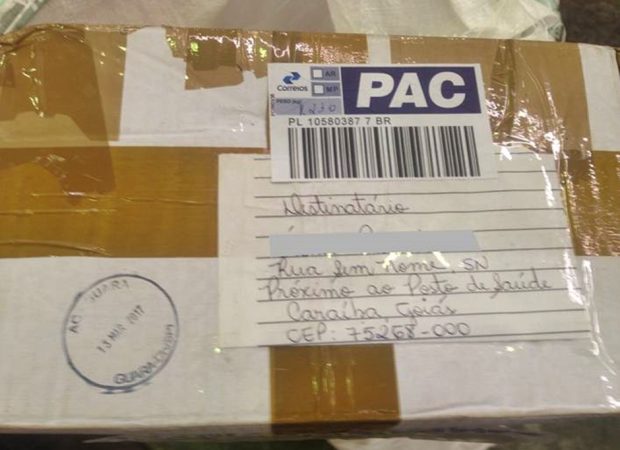 Correios
AR
MP
PAC
PESO (kg)
PL 10580387 7 BR
Destinatário
Rua Sem Nome, SN
Próximo ao Posto de Saúde
Caraíba, Goiás
CEP: 75268-000
AC GUARA
13 MAR 2017